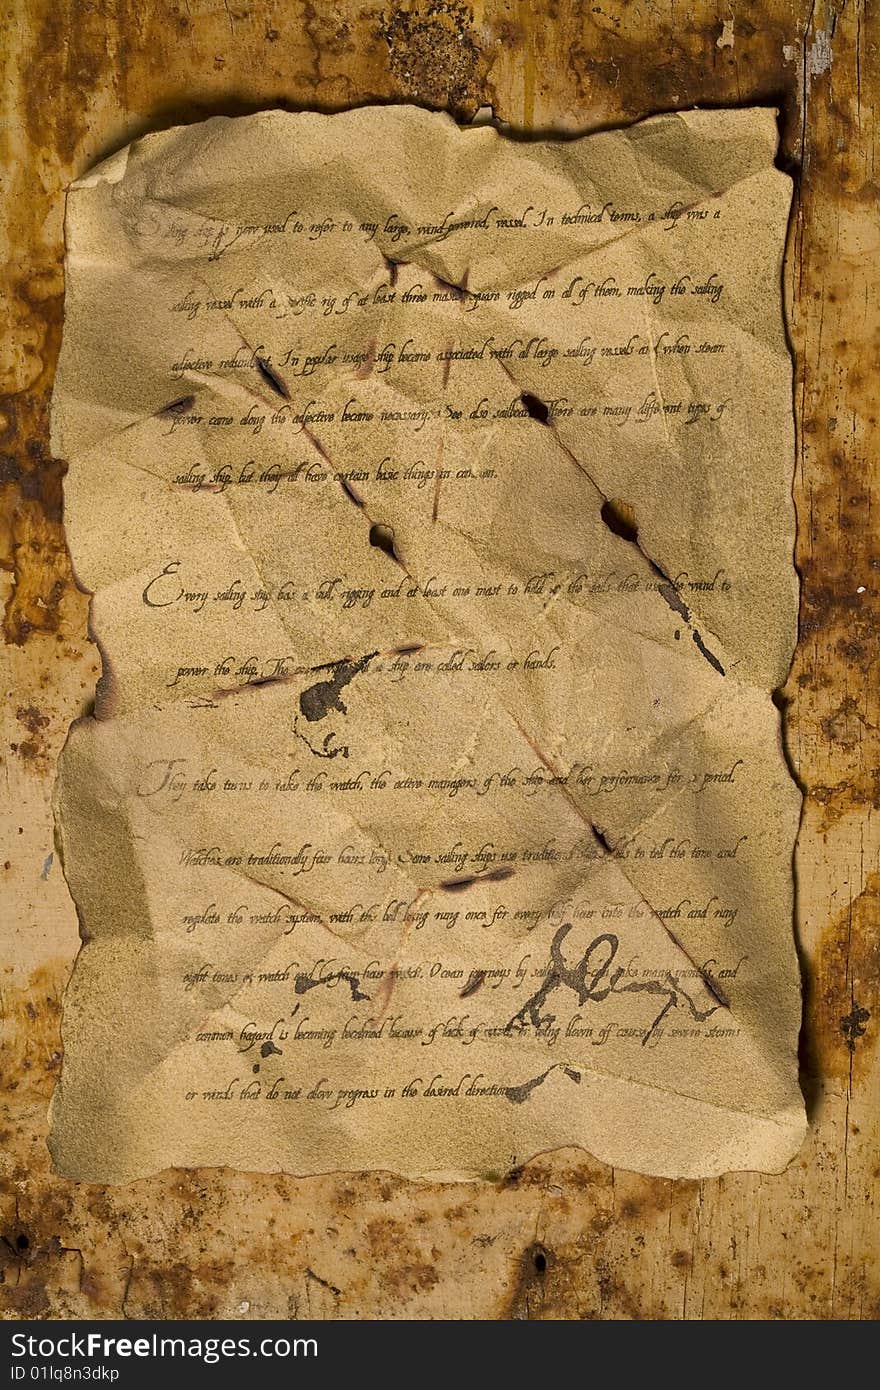 Sailing ship is now used to refer to any large, wind-powered, vessel. In technical terms, a ship was a
sailing vessel with a specific rig of at least three masts, square rigged on all of them, making the sailing
adjective redundant. In popular usage ship became associated with all large sailing vessels and when steam
power came along the adjective became necessary. See also sailboat. There are many different types of
sailing ship, but they all have certain basic things in common.
Every sailing ship has a hull, rigging and at least one mast to hold up the sails that use the wind to
power the ship. The a ship are called sailors or hands.
They take turns to take the watch, the active managers of the ship and her performance for a period.
Watches are traditionally four hours long. Some sailing ships use traditional bells to tell the time and
regulate the watch system, with the bell being rung once for every half hour into the watch and rung
eight times at watch end four hour watch. Ocean journeys by can take many months, and
a common hazard is becoming becalmed because of lack of or being blown off course by severe storms
or winds that do not allow progress in the desired direction.
StockFreeImages.com
ID 01lq8n3dkp